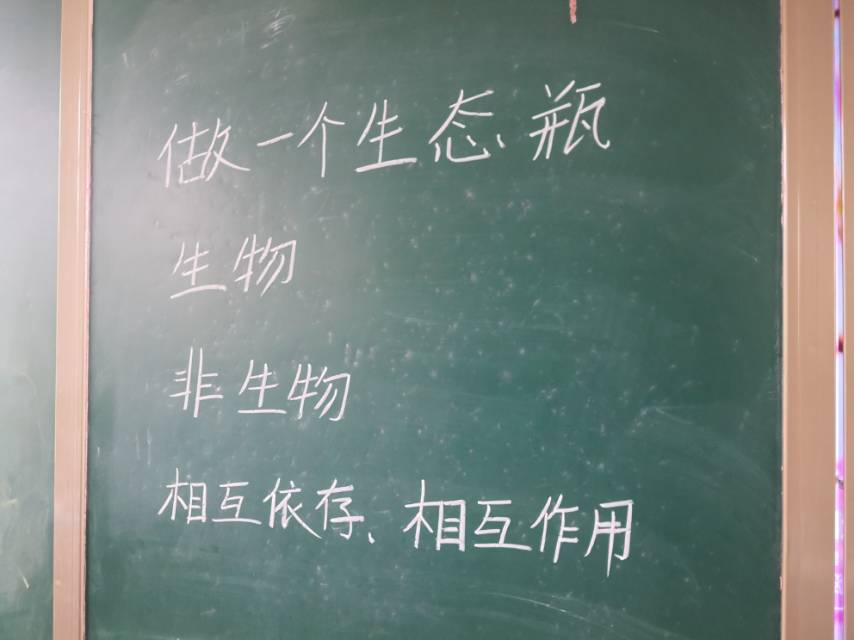 做一个生态瓶
生物
非生物
相互依存、相互作用